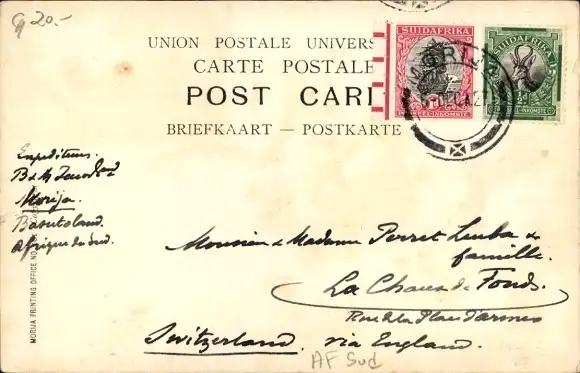 G 20.-
UNION POSTALE UNIVERS
CARTE POSTALE
POST CAR
BRIEFKAART — POSTKARTE
SUIDAFRIKA
SUIDAFRIKA
MORIJA
Expediteurs.
B & M
Morija.
Basutoland.
Afrique du Sud.
MORIJA PRINTING OFFICE NO
Monsieur & Madame Perret Leuba &
famille.
La Chaux de Fonds.
Rue de la Place d'armes
Switzerland. via England.
AF Sud